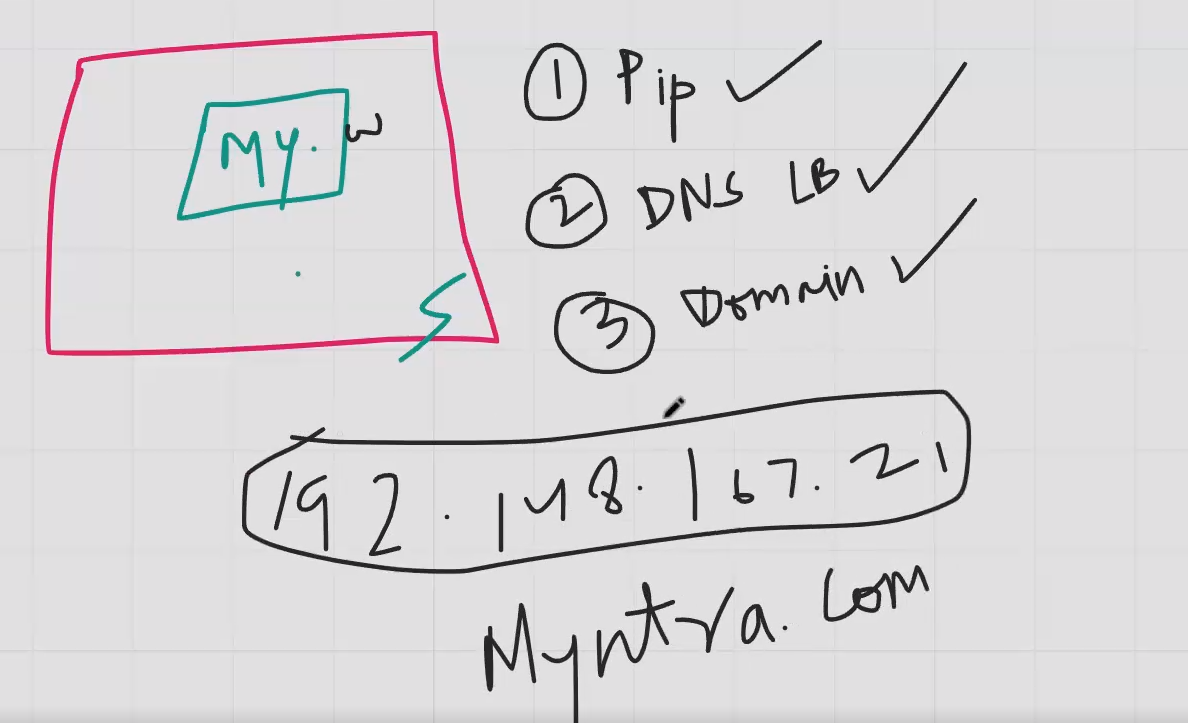 My. w
① Pip ✓
② DNS LB ✓
③ Domain ✓
S
192.148.167.21
Myntra.com